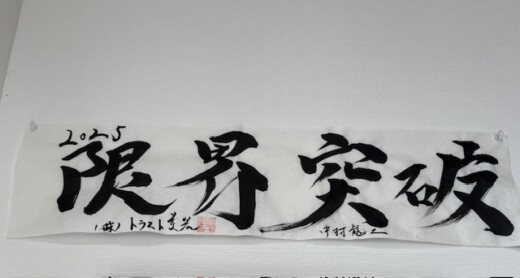 2025
限界突破
(株)トラスト美装
中村龍二